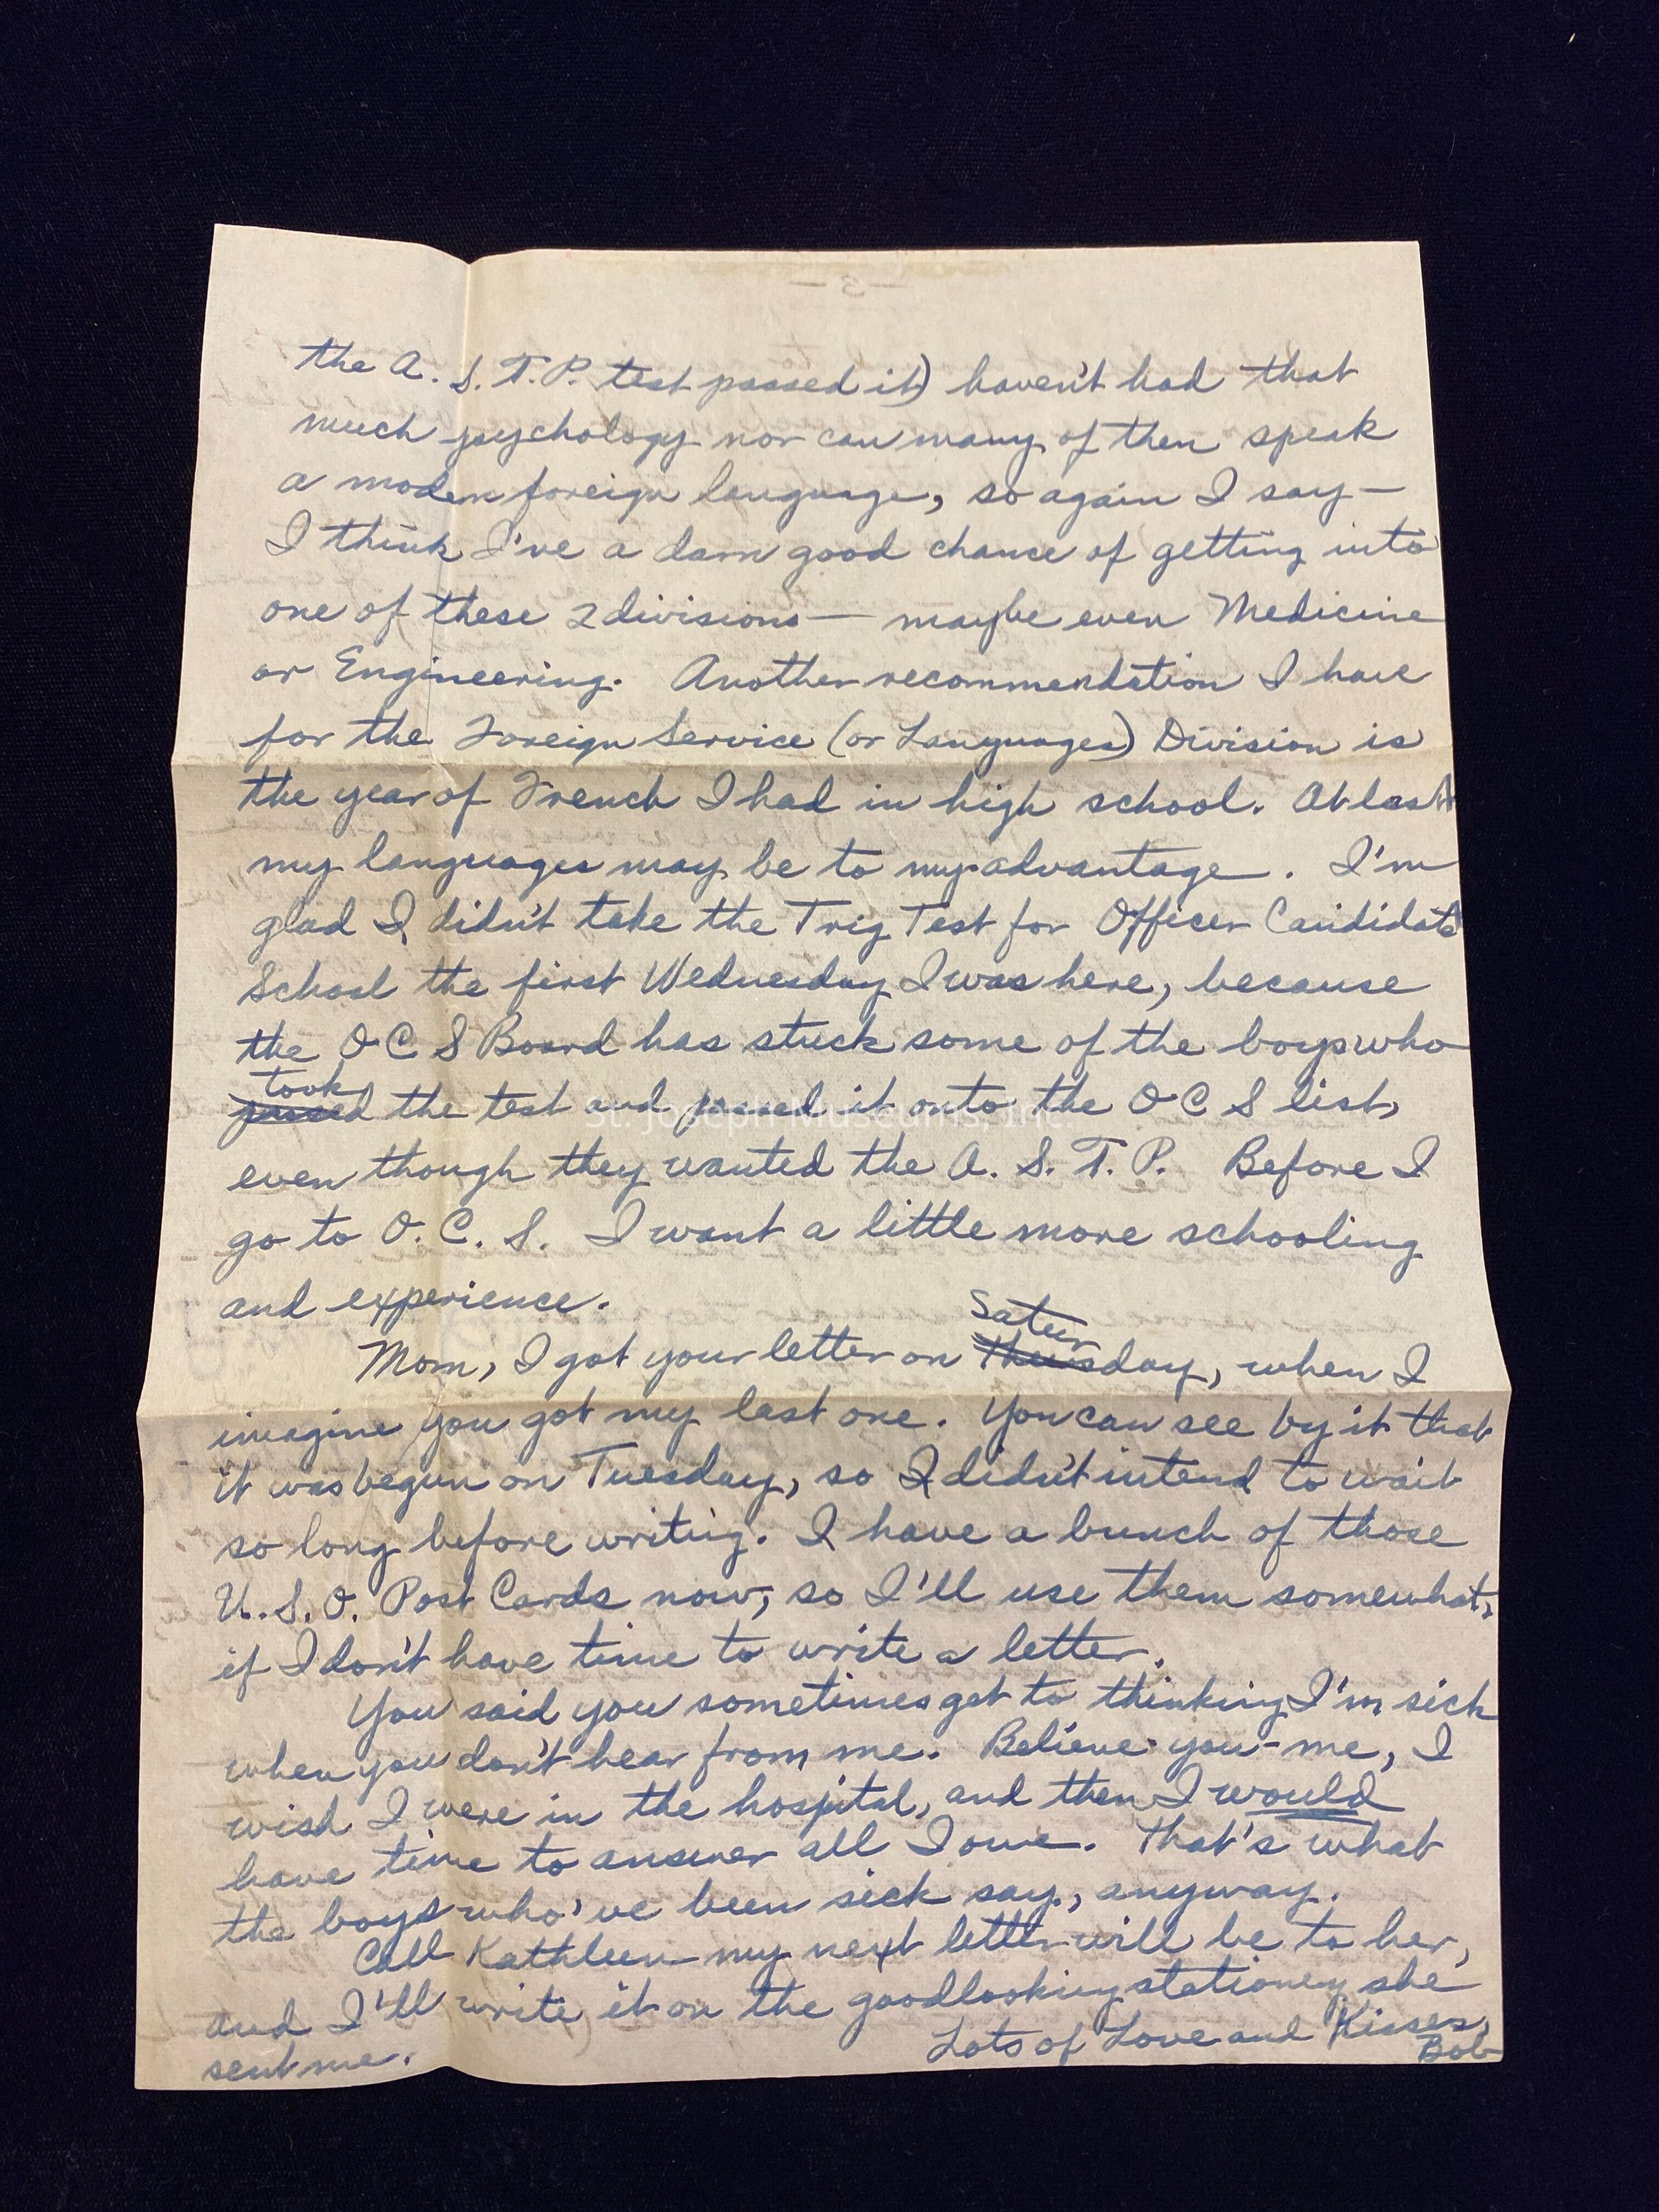 the A. S. T. P. test passed it) haven't had that
much psychology nor can many of then speak
a modern foreign language, so again I say—
I think I've a darn good chance of getting into
one of these 2 divisions— maybe even Medicine
or Engineering. Another recommendation I have
for the Foreign Service (or Languages) Division is
the year of French I had in high school. At last
my languages may be to my advantage. I'm
glad I didn't take the Trig Test for Officer Candidate
School the first Wednesday I was here, because
the O C S Board has stuck some of the boys who
took
passed the test and passed it onto the O C S list,
St. Joseph Museums, Inc.
even though they wanted the A. S. T. P. Before I
go to O. C. S. I want a little more schooling
and experience.
Satur
Mom, I got your letter on Thursday, when I
imagine you got my last one. You can see by it that
it was begun on Tuesday, so I didn't intend to wait
so long before writing. I have a bunch of those
U. S. O. Post Cards now, so I'll use them somewhat,
if I don't have time to write a letter.
You said you sometimes get to thinking I'm sick
when you don't hear from me. Believe-you-me, I
wish I were in the hospital, and then I would
have time to answer all I owe. That's what
the boys who've been sick say, anyway.
Call Kathleen my next letter will be to her,
and I'll write it on the goodlooking stationery she
sent me.
Lots of Love and Kisses,
Bob